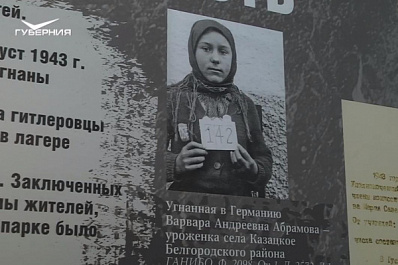 ГУБЕРНИЯ
СТЬ
тей.
уст 1943 г.
гнаны
а гитлеровцы
в лагере
. Заключенных
ны жителей,
парке было
142
Угнанная в Германию
Варвара Андреевна Абрамова –
уроженка села Казацкое
Белгородского района
ГАНИБО. Ф. 2098. Оп. 1. Д.